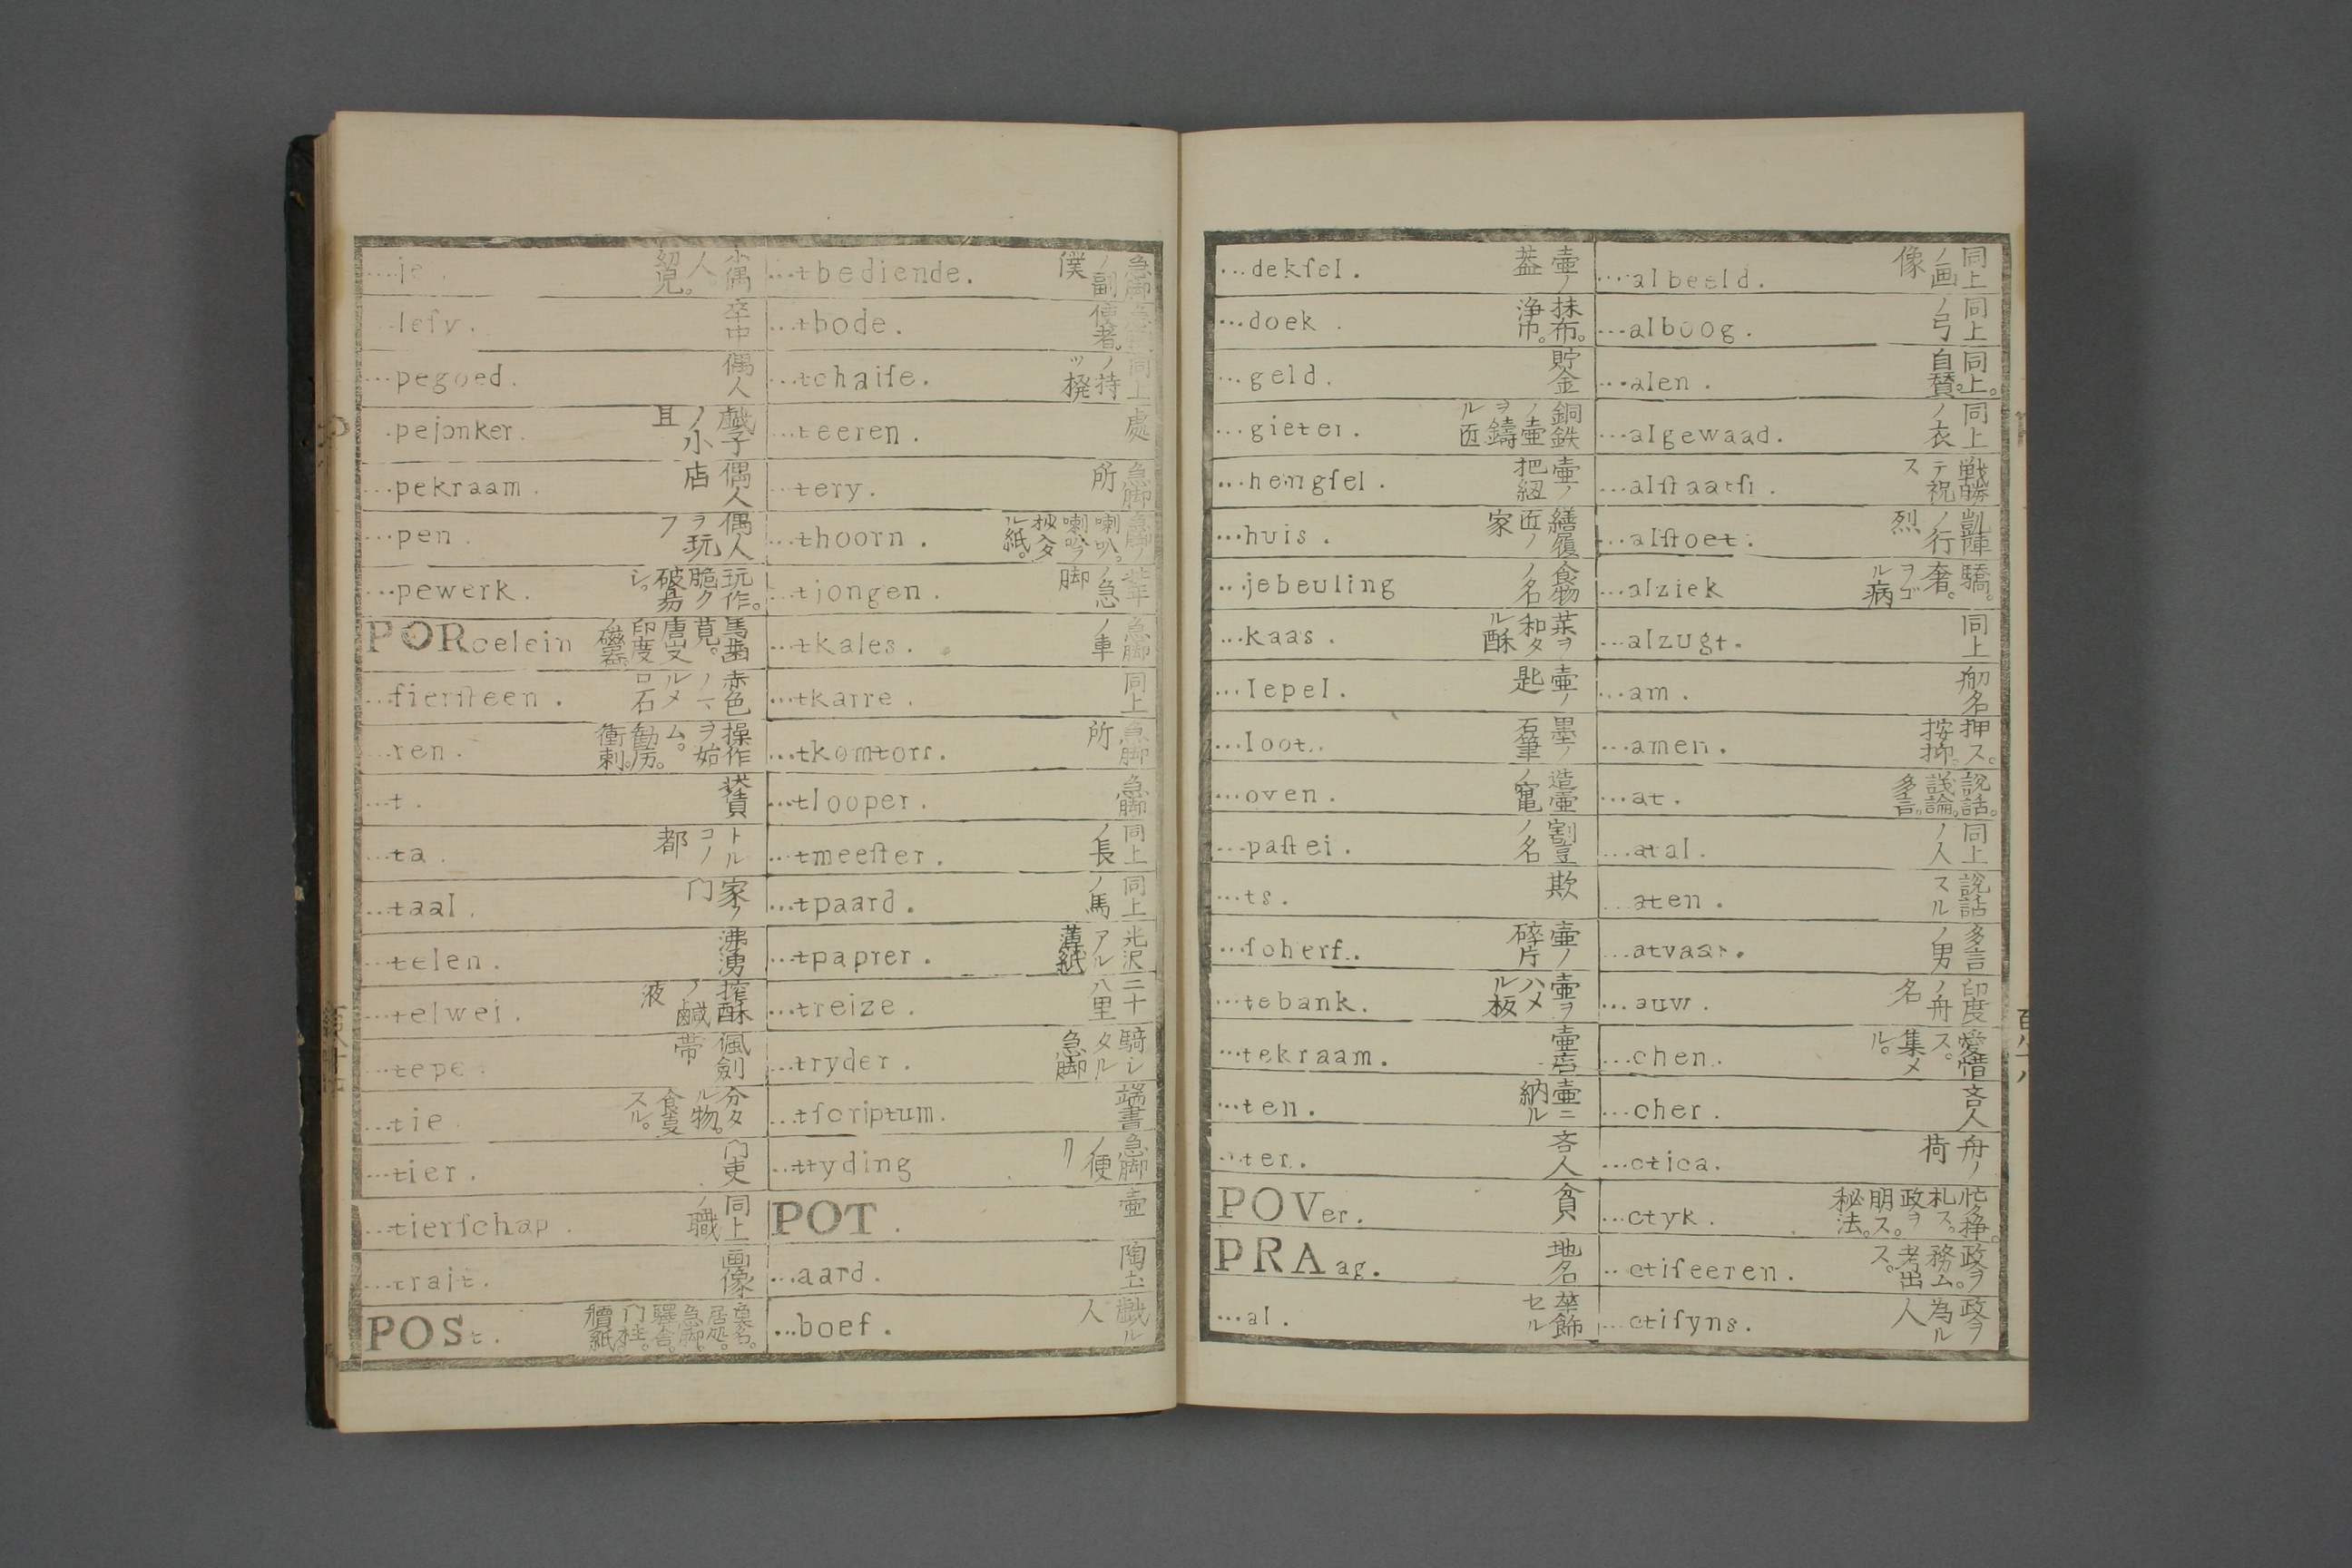 ...je. 小偶人 幼児。
...lesy. 卒中
...pegoed. 偶人
.pejonker. 戯子ノ小且
...pekraam. 偶人店
...pen. 偶人ヲ玩フ
...pewerk. 玩作。脆ク破易シ。
PORcelein 馬歯莧。唐叉印度ノ磁器
...fierſteen. 赤色ノ一ルメロ石
...ren. 操作ヲ始ム。勧励。衝刺。
...t.
...ta. トルコノ都
...taal. 家ノ门
...telen. 沸湧
...telwei. 搾酥ノ鹹液
...tepe. 佩剣帯
...tie. 分タル物。食夏スル。
...tier. 门吏
...tierſchap. 同上ノ職
...trait. 画像
POSt. 居処。急脚。驛舎。门柱。牘紙。
...tbediende. 急脚ノ副僕
...tbode. 使者。
...tchaiſe. 同上ノ持ツ撥
...teeren. 處
...tery. 急脚所
...thoorn. 急脚ノ喇叭。
...tjongen. ノ急脚
...tkales. 急脚ノ車
...tkarre. 同上
...tkomtorr. 急脚所
...tlooper. 急脚
...tmeeſter. 同上ノ長
...tpaard. 同上ノ馬
...tpaprer. 光沢アル薄紙
...treize. 二十八里
...tryder. 騎シタル急脚
...tſcriptum. 端書
...ttyding 急脚ノ便リ
POT. 壷
...aard. 陶土
...boef. 戯ル人
...dekſel. 壷ノ葢
...doek. 抹布。浄巾。
...geld. 貯金
...gieter. 銅鉄ノ壷ヲ鋳ル匠
...hengſel. 壷ノ把紐
...huis. 繕履匠ノ家
...jebeuling 食物ノ名
...kaas. 菜ヲ和タル酥
...lepel. 壷ノ匙
...loot. 墨ノ石筆
...oven. 造壷ノ竃
...paſtei. 割豆ノ名
...ts. 欺
...ſoherf. 壷ノ碎片
...tebank. 壷ヲハメル板
...tekraam. 壷店
...ten. 壷ニ納ル
...ter. 吝人
POVer. 貧
PRAag. 地名
...al. 華飾セル
...albeeld. 同上ノ画像
...alboog. 同上ノ弓
...alen. 同上。自賛。
...algewaad. 同上ノ衣
...alſtaatſi. 戦勝テ祝ス
...alſtoet. 凱陣ノ行烈
...alziek 驕。奢。ヲゴル病
...alzugt. 同上
...am. 舠名
...amen. 押ス。按抑。
...at. 説話。議論。多言。
...atal. 同上ノ人
...aten. 説話スル
...atvaar. 多言ノ男
...auw. 印度ノ舟名
...chen. 愛惜ス。集メル。
...cher. 吝人
...ctica. 舟ノ荷
...ctyk. 札ス。政ヲ明ス。秘法。
...ctiſeeren. 政ヲ務ム。考出ス。
...ctiſyns. 政ヲ為ル人